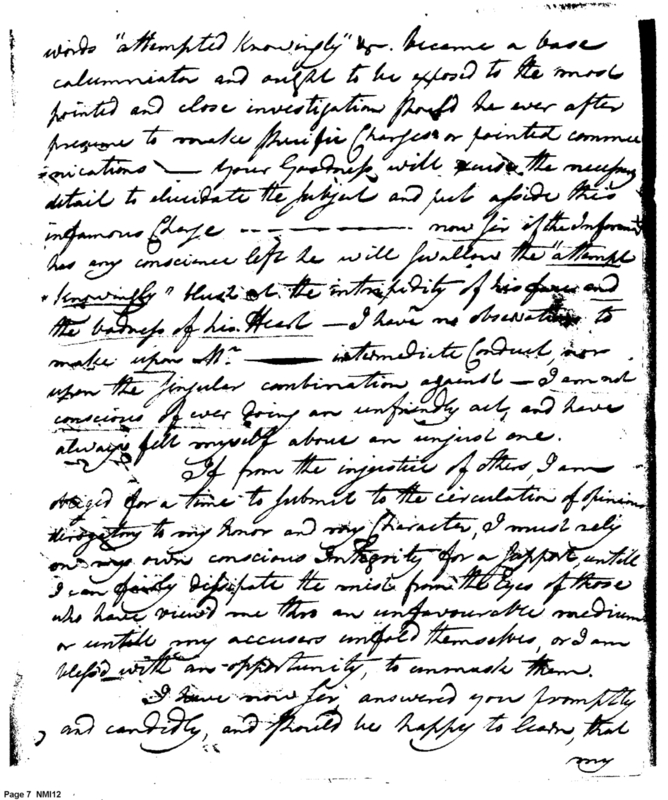 words "attempted Knowingly" &c. became a base
calumniator and ought to be exposed to the most
pointed and close investigation should he ever after
presume to make specific Charges or pointed commu
=nications — your Goodness will excuse the necessary
detail to elucidate the subject and put asside this
infamous Charge — — — — — now Sir if the Informant
has any conscience left he will swallow the "attempt
"Knowingly" blush at the intrepidity of his face and
the badness of his Heart — I have no observations to
make upon Mr. ——— intermediate Conduct, nor
upon the singular combination against — I am not
conscious of ever doing an unfriendly act, and have
always felt myself above an unjust one.
If from the injustice of others, I am
obliged for a time to submit to the circulation of opinions
derogatory to my honor and my Character, I must rely
on my own conscious Integrity for a support, untill
I can fairly dissipate the mist from the Eyes of those
who have viewed me thro an unfavourable medium
or untill my accusers unfold themselves, or I am
bless'd with an opportunity, to unmask them.
I have now Sir, answered you promptly
and candidly, and should be happy to learn, that
my
Page 7 NMI12